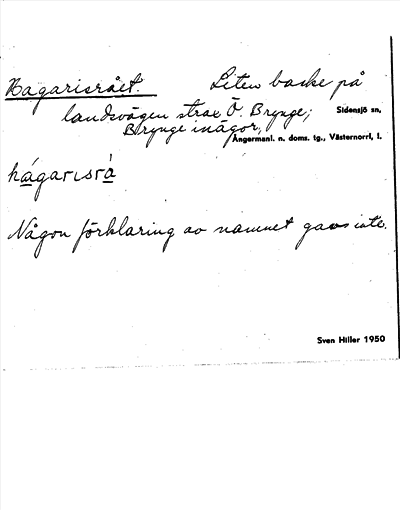 Bagarisrået. Liten backe på
landsvägen strax Ö. Brynge; Sidensjö sn,
Brynge inägor, Ångermanl. n. doms. tg., Västernorrl. l.
Någon förklaring av namnet gavs inte.
Sven Hiller 1950